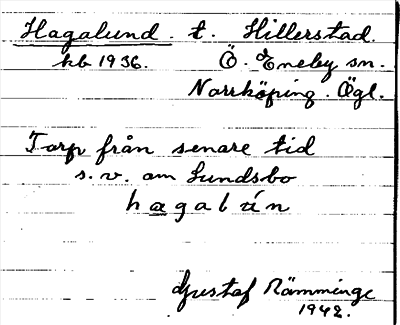 Hagalund. t. Hillerstad.
kb 1936. Ö. Eneby sn.
Norrköping. Ögl.
Torp från senare tid
s.v. om Lundsbo
hagalún
Gustaf Rämminge
1942.